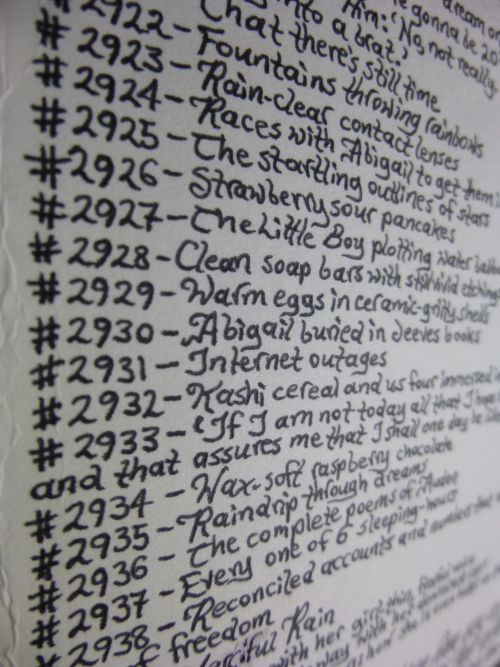 dream on
Him: "No, not really
into a brat."
#2922- That there's still time
#2923- Fountains throwing rainbows
#2924- Rain-clear contact lenses
#2925- Races with Abigail to get them
#2926- The startling outlines of stars
#2927- Strawberry sour pancakes
#2928- The Little Boy plotting water
#2929- Clean soap bars with still vivid etchings
#2930- Warm eggs in ceramic-gritty shells
#2931- Abigail buried in Jeeves books
#2932- Internet outages
#2933- Kashi cereal and us four immersed in
"If I am not today all that I hope
and that assures me that I shall one day be
#2934- Wax-soft raspberry chocolate
#2935- Raindrip through dreams
#2936- The complete poems of
#2937- Every one of 6 sleeping-hours
#2938- Reconciled accounts and
of freedom
Merciful Rain
with her